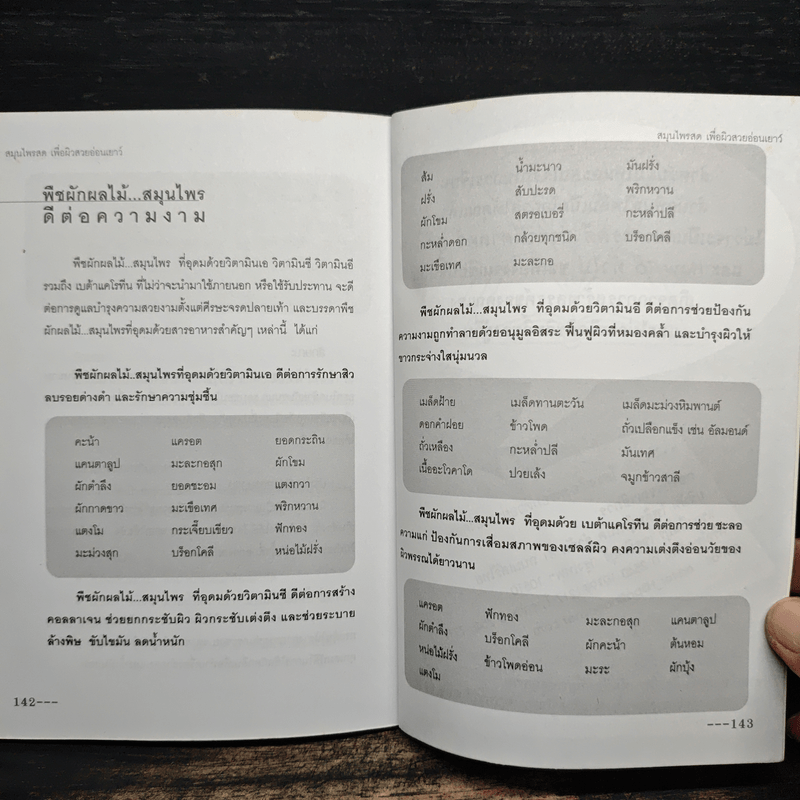 สมุนไพรสด เพื่อผิวสวยอ่อนเยาว์
พืชผักผลไม้...สมุนไพร
ดีต่อความงาม
พืชผักผลไม้...สมุนไพร ที่อุดมด้วยวิตามินเอ วิตามินซี วิตามินอี
รวมถึง เบต้าแคโรทีน ที่ไม่ว่าจะนำมาใช้ภายนอก หรือใช้รับประทาน จะดี
ต่อการดูแลบำรุงความสวยงามตั้งแต่ศีรษะจรดปลายเท้า และบรรดาพืช
ผักผลไม้...สมุนไพรที่อุดมด้วยสารอาหารสำคัญๆ เหล่านี้ ได้แก่
พืชผักผลไม้...สมุนไพรที่อุดมด้วยวิตามินเอ ดีต่อการรักษาสิว
ลบรอยด่างดำ และรักษาความชุ่มชื้น
คะน้า แครอต ยอดกระถิน
แคนตาลูป มะละกอสุก ผักโขม
ผักตำลึง ยอดชะอม แตงกวา
ผักกาดขาว มะเขือเทศ พริกหวาน
แตงโม กระเจี๊ยบเขียว ฟักทอง
มะม่วงสุก บร็อกโคลี หน่อไม้ฝรั่ง
พืชผักผลไม้...สมุนไพร ที่อุดมด้วยวิตามินซี ดีต่อการสร้าง
คอลลาเจน ช่วยยกกระชับผิว ผิวกระชับเต่งตึง และช่วยระบาย
ล้างพิษ ขับไขมัน ลดน้ำหนัก
142---
สมุนไพรสด เพื่อผิวสวยอ่อนเยาว์
ส้ม น้ำมะนาว มันฝรั่ง
ฝรั่ง สับปะรด พริกหวาน
ผักโขม สตรอเบอรี่ กะหล่ำปลี
กะหล่ำดอก กล้วยทุกชนิด บร็อกโคลี
มะเขือเทศ มะละกอ
พืชผักผลไม้...สมุนไพร ที่อุดมด้วยวิตามินอี ดีต่อการช่วยป้องกัน
ความงามถูกทำลายด้วยอนุมูลอิสระ ฟื้นฟูผิวที่หมองคล้ำ และบำรุงผิวให้
ขาวกระจ่างใสนุ่มนวล
เมล็ดฝ้าย เมล็ดทานตะวัน เมล็ดมะม่วงหิมพานต์
ดอกคำฝอย ข้าวโพด ถั่วเปลือกแข็ง เช่น อัลมอนด์
ถั่วเหลือง กะหล่ำปลี มันเทศ
เนื้ออะโวคาโด ปวยเล้ง จมูกข้าวสาลี
พืชผักผลไม้...สมุนไพร ที่อุดมด้วย เบต้าแคโรทีน ดีต่อการช่วยชะลอ
ความแก่ ป้องกันการเสื่อมสภาพของเซลล์ผิว คงความเต่งตึงอ่อนวัยของ
ผิวพรรณได้ยาวนาน
แครอต ฟักทอง มะละกอสุก แคนตาลูป
ผักตำลึง บร็อกโคลี ผักคะน้า ต้นหอม
หน่อไม้ฝรั่ง ข้าวโพดอ่อน มะระ ผักบุ้ง
แตงโม
---143